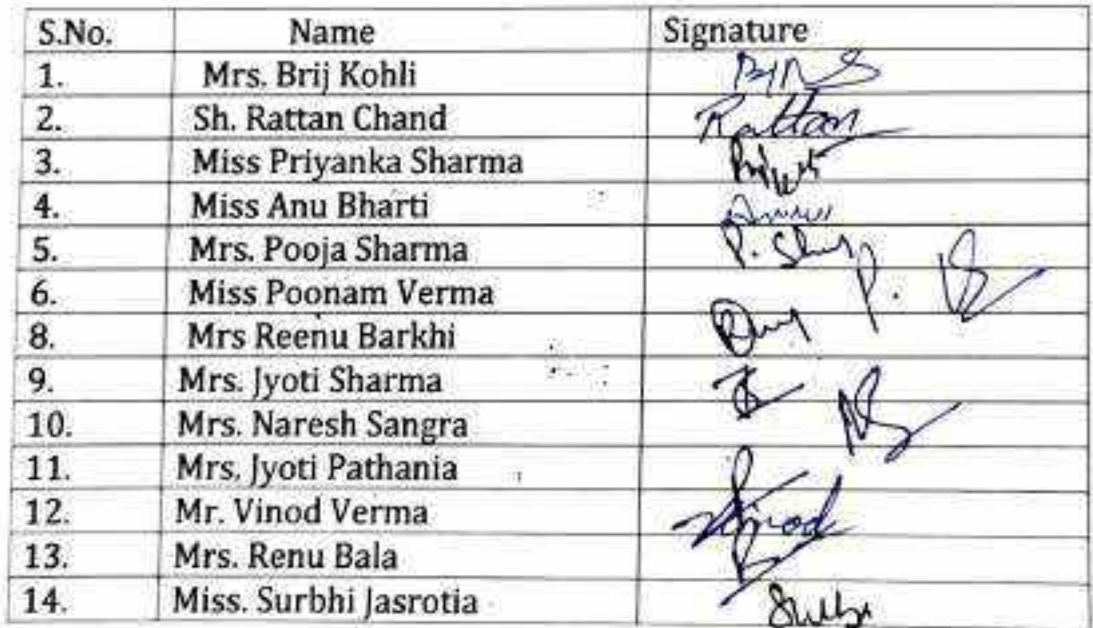 S.No. Name Signature
1. Mrs. Brij Kohli
2. Sh. Rattan Chand Rattan
3. Miss Priyanka Sharma
4. Miss Anu Bharti
5. Mrs. Pooja Sharma P.
6. Miss Poonam Verma P.
8. Mrs Reenu Barkhi
9. Mrs. Jyoti Sharma
10. Mrs. Naresh Sangra
11. Mrs. Jyoti Pathania
12. Mr. Vinod Verma Vinod
13. Mrs. Renu Bala
14. Miss. Surbhi Jasrotia